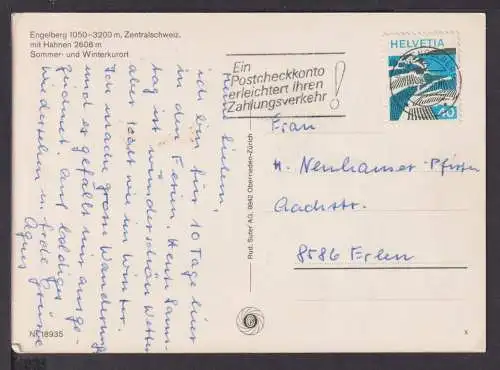 Engelberg 1050-3200 m, Zentralschweiz,
mit Hahnen 2606 m
Sommer- und Winterkurort
Ein
Postcheckkonto
erleichtert Ihren
Zahlungsverkehr!
HELVETIA
40
Ihr Lieben,
ich bin für 10 Tage hier
in den Ferien. Heute Sams-
tag ist wunderschön Wetter
aber kalt wie im Winter.
Ich mache grosse Wanderungen
und es gefällt mir ausge-
zeichnet. Auf baldiges
wiedersehen u. frohe Grüsse
Agnes
Rud. Suter AG, 8942 Oberrieden-Zürich
Frau
H. Neuhauser-Pfister
Aachstr.
8586 Erlen
Nr. 18935
x